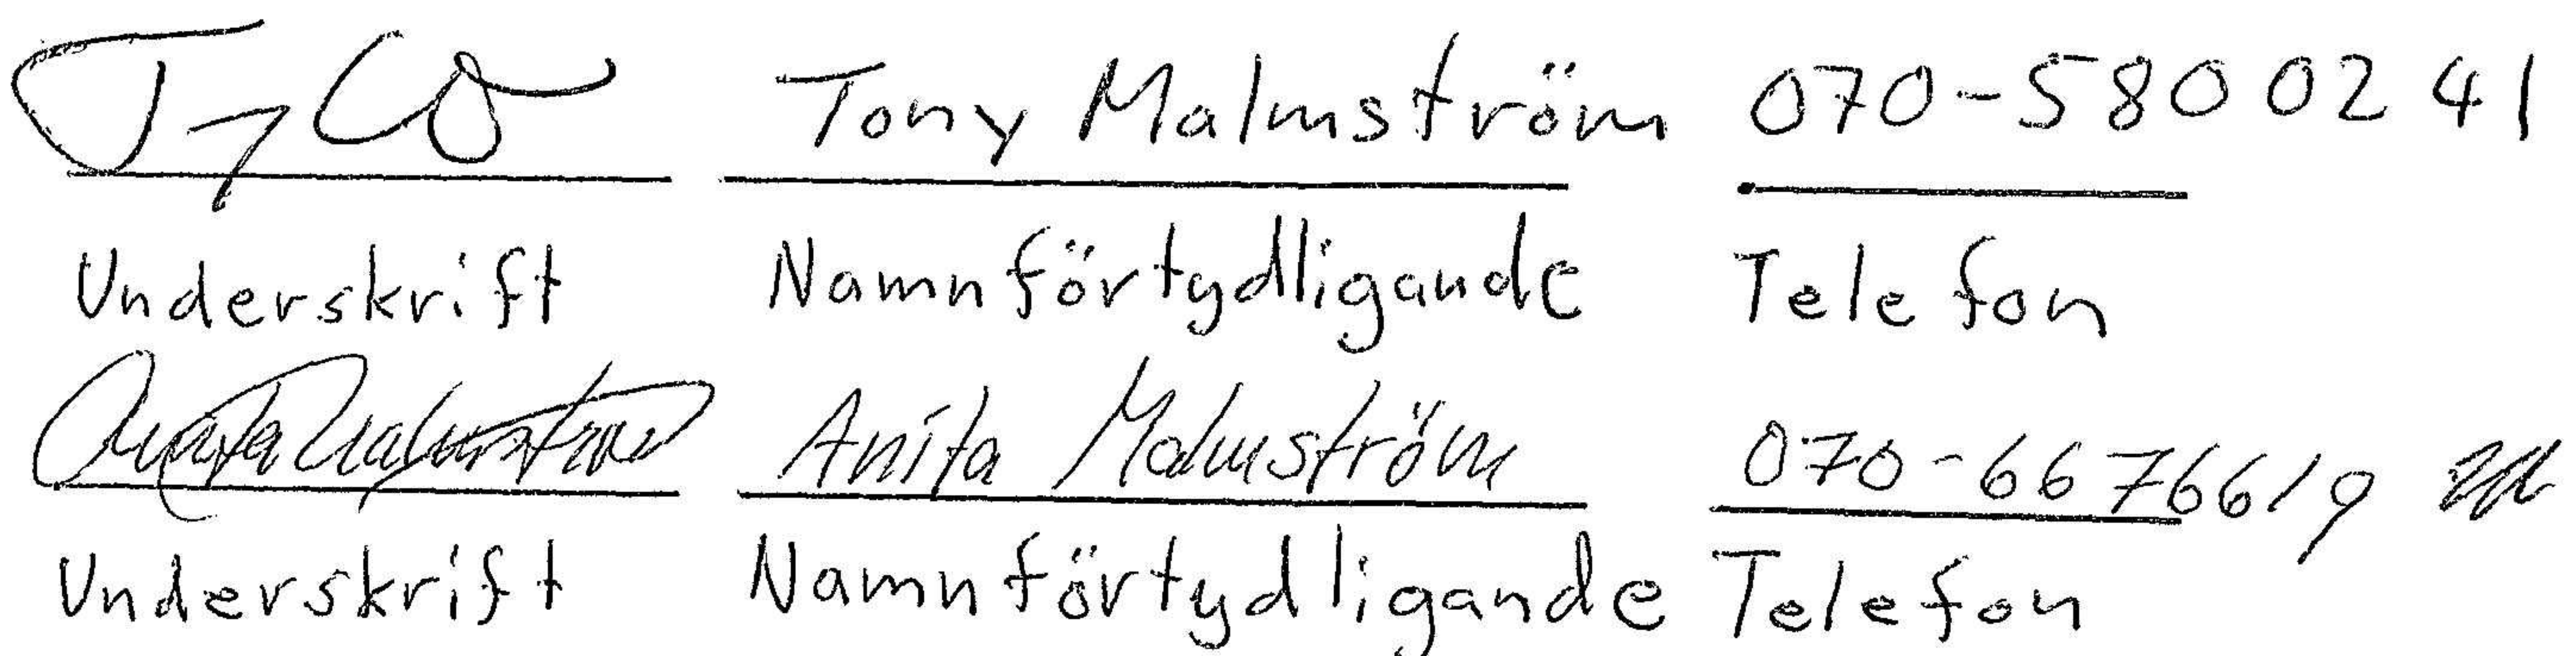 Tony Malmström 070-5800241
Underskrift Namnförtydligande Telefon
Anita Malmström Anita Malmström 070-6676619
Underskrift Namnförtydligande Telefon